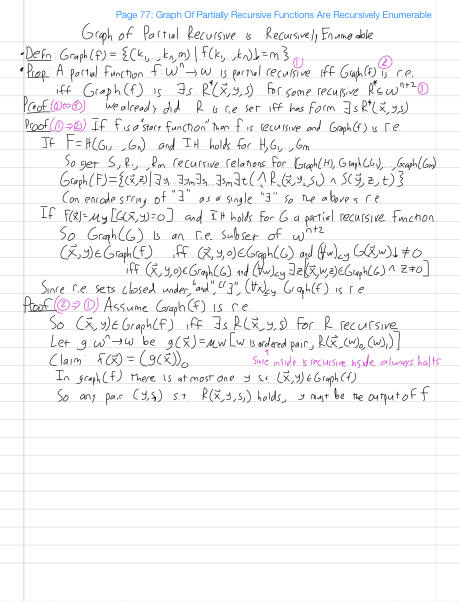 Page 77: Graph Of Partially Recursive Functions Are Recursively Enumerable
Graph of Partial Recursive is Recursively Enumerable
• Defn: Graph(f) = {(k₁,..,kₙ,m) | f(k₁,..,kₙ)↓=m}
• Prop: A partial function f: ωⁿ→ω is partial recursive ① iff Graph(f) is r.e. ②
iff Graph(f) is ∃s R*(x⃗,y,s) for some recursive R*⊆ωⁿ⁺² ③
Proof (②⇔③) we already did R is r.e set iff has form ∃s R*(x⃗,y,s)
Proof (①⇒②) If f is a "start function" then f is recursive and Graph(f) is r.e
If F=H(G₁,..,Gₘ) and IH holds for H,G₁,..,Gₘ
So get S, R₁,..,Rₘ recursive relations for (Graph(H), Graph(G₁),..,Graph(Gₘ)
Graph(F)={(x⃗,z) | ∃y₁..∃yₘ∃s₁..∃sₘ∃t(⋀Rᵢ(x⃗,yᵢ,sᵢ) ∧ S(y⃗,z,t)}
Can encode string of "∃" as a single "∃" so the above is r.e
If F(x⃗)=μy[G(x⃗,y)=0] and IH holds for G a partial recursive function
So Graph(G) is an r.e. subset of ωⁿ⁺²
(x⃗,y)∈Graph(f) iff (x⃗,y,0)∈Graph(G) and (∀w)<y G(x⃗,w)↓≠0
iff (x⃗,y,0)∈Graph(G) and (∀w)<y ∃z[(x⃗,w,z)∈Graph(G) ∧ z≠0]
Since r.e. sets closed under, "and", "∃", (∀x)<y Graph(f) is r.e
Proof (②⇒①) Assume Graph(f) is r.e
So (x⃗,y)∈Graph(f) iff ∃s R(x⃗,y,s) for R recursive
Let g:ωⁿ→ω be g(x⃗)=μw[w is ordered pair, R(x⃗,(w)₀,(w)₁)]
Claim: f(x⃗) = (g(x⃗))₀ Since inside is recursive inside always halts
In graph(f) there is at most one y s.t (x⃗,y)∈Graph(f)
So any pair (y,s) s.t R(x⃗,y,s,) holds, y must be the output of f